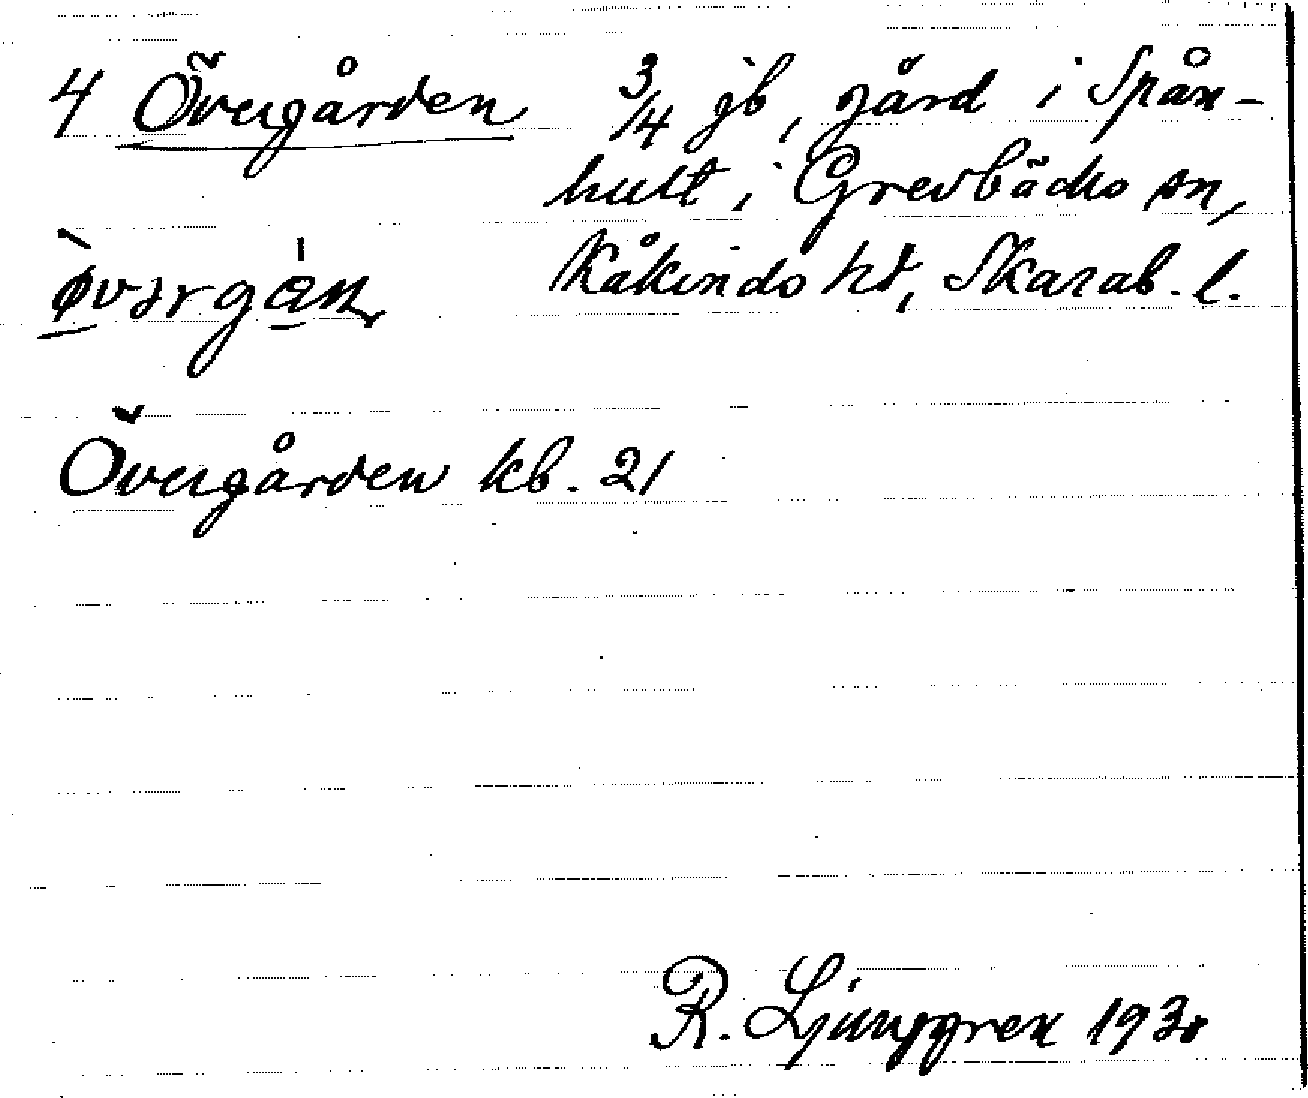 4 Övergården 3/4 jb, gård i Spån-
hult, i Grevbäcks sn,
Kåkinds hd, Skarab. l.
Övergården kb. 21
R. Ljunggren 1930